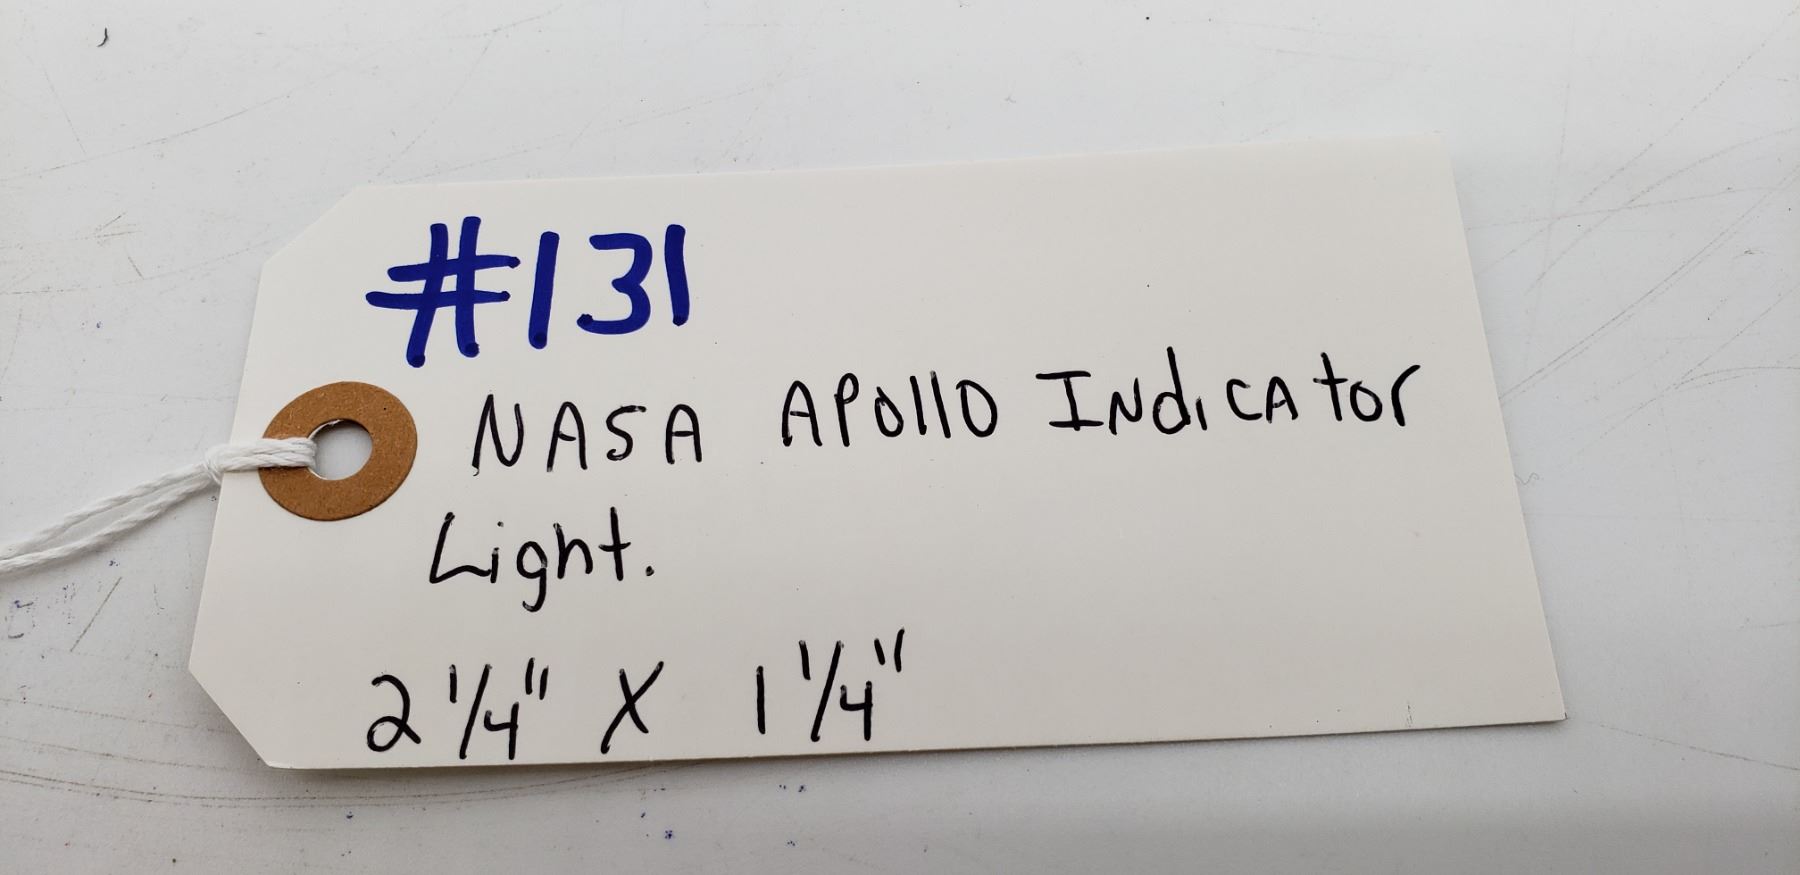 #131
NASA APOllO INdiCAtor
Light.
2 1/4" X 1 1/4"